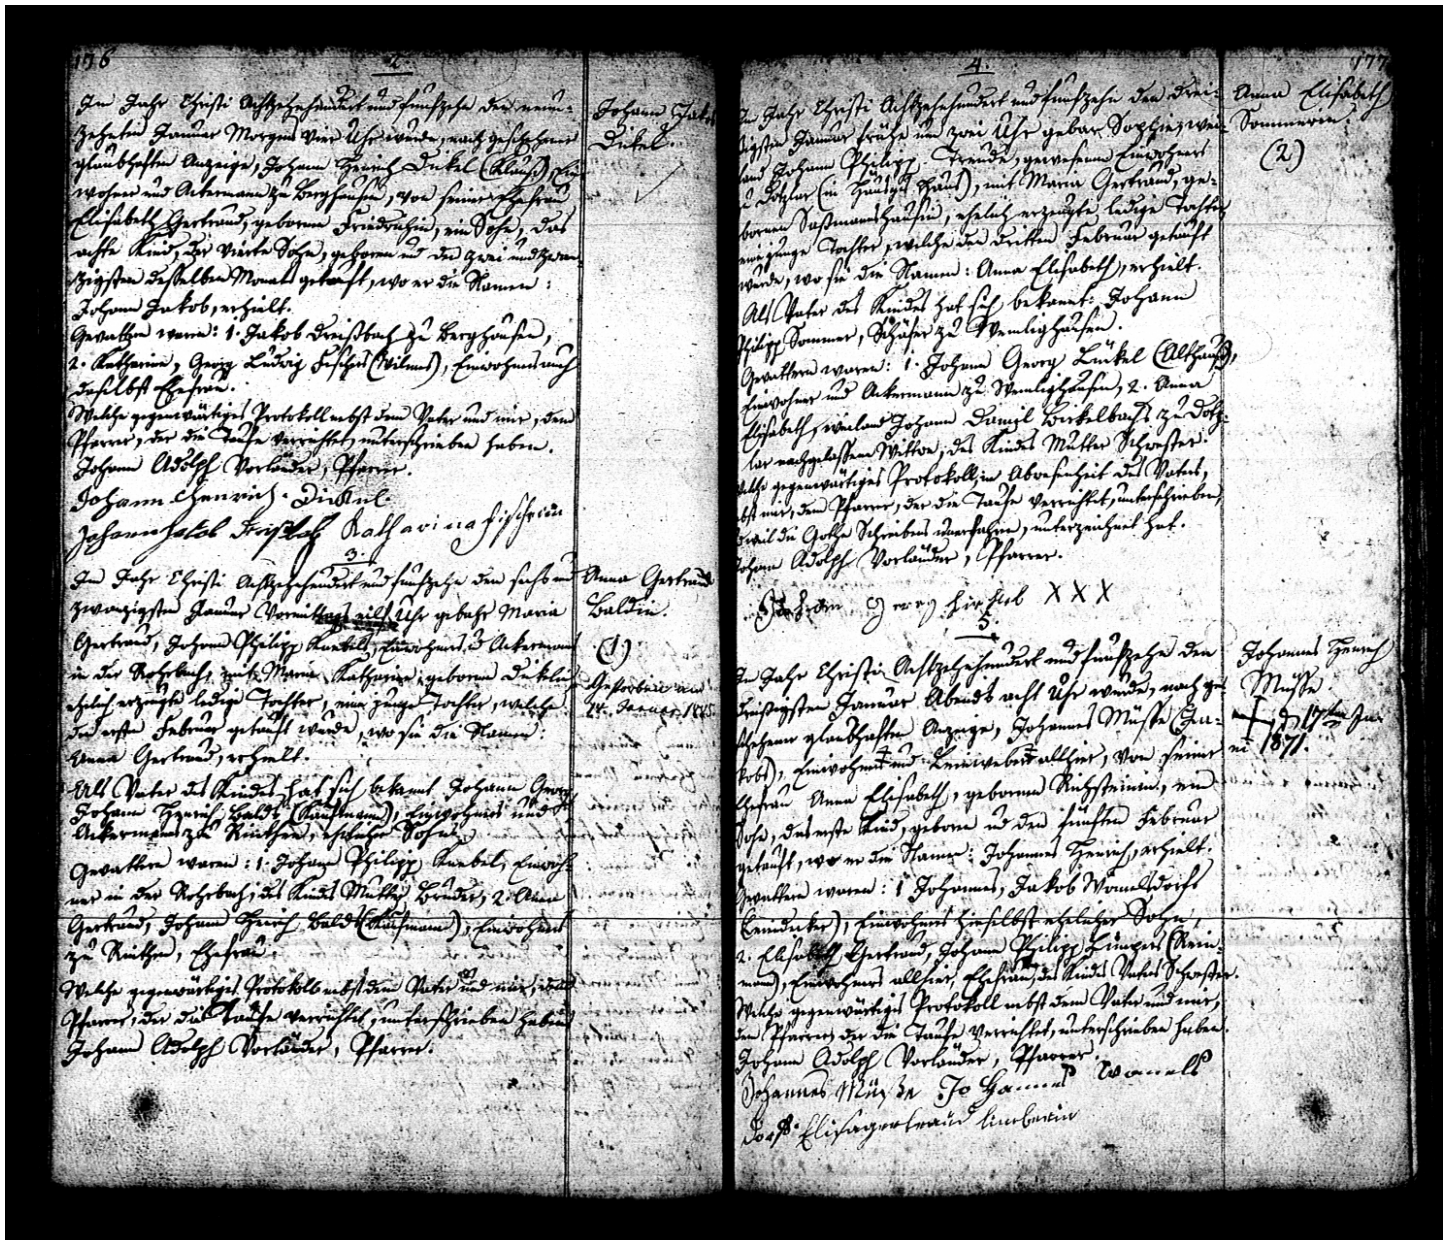 176
2.
Im Jahr Christi Achtzehnhundert und fünfzehn den neun-
zehnten Januar Morgens vier Uhr wurde, nach geschehener
glaubhaften Anzeige, Johann Henrich Dickel (Klauß), Ein-
wohner und Ackermann zu Berghausen, von seiner Ehefrau
Elisabeth Gertraud, geborene Friedrichin, ein Sohn, das
achte Kind, der vierte Sohn, geboren und den zwei und zwan-
zigsten desselben Monats getauft, wo er die Namen:
Johann Jakob, erhielt.
Gevattern waren: 1. Jakob Dreisbach zu Berghausen,
2. Katharine, Georg Ludwig Fischers (Wilmes), Einwohners auch
daselbst Ehefrau.
Welche gegenwärtiges Protokoll nebst dem Vater und mir, dem
Pfarrer, der die Taufe verrichtet, unterschrieben haben.
Johann Adolph Vorländer, Pfarrer.
Johann Henrich Dickel
Johann Jacob Katharina Fischerin
Johann Jakob
Dickel.
3.
Im Jahr Christi Achtzehnhundert und fünfzehn den sechs und
zwanzigsten Januar Vormittags eilf Uhr gebahr Maria
Gertraud, Johann Philipp Knebels, Einwohners u Ackermanns
in der Rohrbach, mit Maria Katharine, geborene Dickelin
ehelich erzeugte ledige Tochter, eine junge Tochter, welche
den ersten Februar getauft wurde, wo sie die Namen:
Anna Gertraud, erhielt.
Als Vater des Kindes hat sich bekannt Johann Georg
Johann Henrich Balds (Kaufmann), Einwohners und
Ackermanns zu Rinthe, ehelicher Sohn.
Gevattern waren: 1. Johann Philipp Knebel, Einwoh-
ner in der Rohrbach, des Kindes Mutter Bruder, 2. Anna
Gertraud, Johann Henrich Balds (Kaufmann), Einwohners
zu Rinthe, Ehefrau.
Welche gegenwärtiges Protokoll nebst dem Vater und mir, dem
Pfarrer, der die Taufe verrichtet, unterschrieben haben
Johann Adolph Vorländer, Pfarrer.
Anna Gertraud
Baldin.
(1)
Gestorben am
24. Januar
177
4.
Im Jahr Christi Achtzehnhundert und fünfzehn den drei-
sigsten Januar frühe um zwei Uhr gebar Sophie, wei-
land Johann Philipp Treude, gewesenen Einwohners
zu Dotzlar (in Haus), mit Maria Gertraud, ge-
bornen Saßmannshausen, ehelich erzeugte ledige Tochter
eine junge Tochter, welche den dritten Februar getauft
wurde, wo sie die Namen: Anna Elisabeth, erhielt.
Als Vater des Kindes hat sich bekannt: Johann
Philipp Sommer, Schäfer zu Wemlighausen.
Gevattern waren: 1. Johann Georg Lückel (Althaus),
Einwohner und Ackermann zu Wemlighausen, 2. Anna
Elisabeth, weiland Johann Daniel Birkelbachs zu Dotz-
lar nachgelassene Wittwe, des Kindes Mutter Schwester.
Welche gegenwärtiges Protokoll, in Abwesenheit des Vaters,
nebst mir, dem Pfarrer, der die Taufe verrichtet, unterschrieben,
weil die Gothe Schreibens unerfahren, unterzeichnet hat.
Johann Adolph Vorländer, Pfarrer.
Georg XXX
Anna Elisabeth
Sommerin.
(2)
5.
Im Jahr Christi Achtzehnhundert und fünfzehn den
dreißigsten Januar Abends acht Uhr wurde, nach ge-
schehener glaubhaften Anzeige, Johannes Müsse (Ja-
kobs), Einwohner und Leineweber allhier, von seiner
Ehefrau Anna Elisabeth, geborene Richsteinin, ein
Sohn, das erste Kind, geboren und den fünften Februar
getauft, wo er die Namen: Johannes Henrich, erhielt.
Gevattern waren: 1 Johannes, Jakob Womelsdorfs
(Leindecker), Einwohners hieselbst ehelicher Sohn,
2. Elisabeth Gertraud, Johann Philipp Limpers
Einwohners allhier, Ehefrau, des Kindes Vaters Schwester.
Welche gegenwärtiges Protokoll nebst dem Vater und mir,
dem Pfarrer, der die Taufe verrichtet, unterschrieben haben.
Johann Adolph Vorländer, Pfarrer.
Johannes Müsse Johannes Womels
dorf Elisagertraud limberin
Johannes Henrich
Müsse.
d 17ten Ju-
ni 1871.